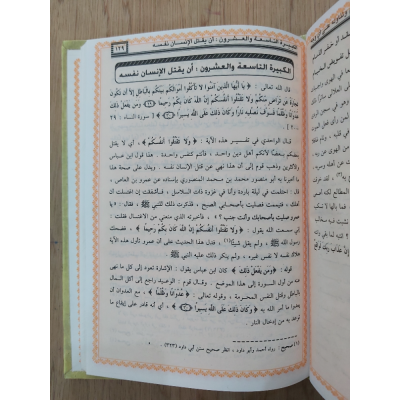 الكبيرة التاسعة والعشرون : أن يقتل الإنسان نفسه
١٢٩
الكبيرة التاسعة والعشرون : أن يقتل الإنسان نفسه
قال الله تعالى : ﴿ يا أيها الذين آمنوا لا تأكلوا أموالكم بينكم بالباطل إلا أن تكون
تجارة عن تراض منكم ولا تقتلوا أنفسكم إن الله كان بكم رحيما (٢٩) ومن يفعل ذلك
عدوانا وظلما فسوف نصليه نارا وكان ذلك على الله يسيرا (٣٠) ﴾ [ سورة النساء : ٢٩
قال الواحدي في تفسير هذه الآية : ﴿ ولا تقتلوا أنفسكم ﴾ ، أي لا يقتل
بعضكم بعضا لأنكم أهل دين واحد ، فأنتم كنفس واحدة ، هذا قول ابن عباس
والأكثرين وذهب قوم إلى أن هذا نهي عن قتل الإنسان نفسه . ويدل على صحة
هذا ما أخبرنا به أبو منصور محمد بن محمد المنصوري بإسناده عن عمرو بن العاص ،
قال : احتلمت في ليلة باردة وأنا في غزوة ذات السلاسل ، فأشفقت إن اغتسلت
أن أهلك ، فتيممت فصليت بأصحابي الصبح ، فذكرت ذلك للنبي ﷺ فقال : «يا
عمرو صليت بأصحابك وأنت جنب ؟» ، فأخبرته الذي منعني من الاغتسال فقلت :
إني سمعت الله يقول : ﴿ ولا تقتلوا أنفسكم إن الله كان بكم رحيما ﴾ ، فضحك
رسول الله ﷺ ، ولم يقل شيئا(١) ، فدل هذا الحديث على أن عمرو تأول هذه الآية
هلاك نفسه لا نفس غيره ، ولم ينكر ذلك عليه النبي ﷺ .
قوله : ﴿ ومن يفعل ذلك ﴾ كان ابن عباس يقول : الإشارة تعود إلى كل ما نهى
عنه من أول السورة إلى هذا الموضع . وقال قوم : الوعيد راجع إلى أكل المال
بالباطل وقتل النفس المحرمة . وقوله تعالى : ﴿ عدوانا وظلما ﴾ ، مع العدوان أن
يعدو ما أمر الله به ﴿ وكان ذلك على الله يسيرا (٣٠) ﴾ ، أي أنه قادر على إيقاع ما
توعد به من إدخال النار .
(١) صحيح : رواه أحمد وأبو داود ، انظر صحيح سنن أبي داود (٣٢٣) .